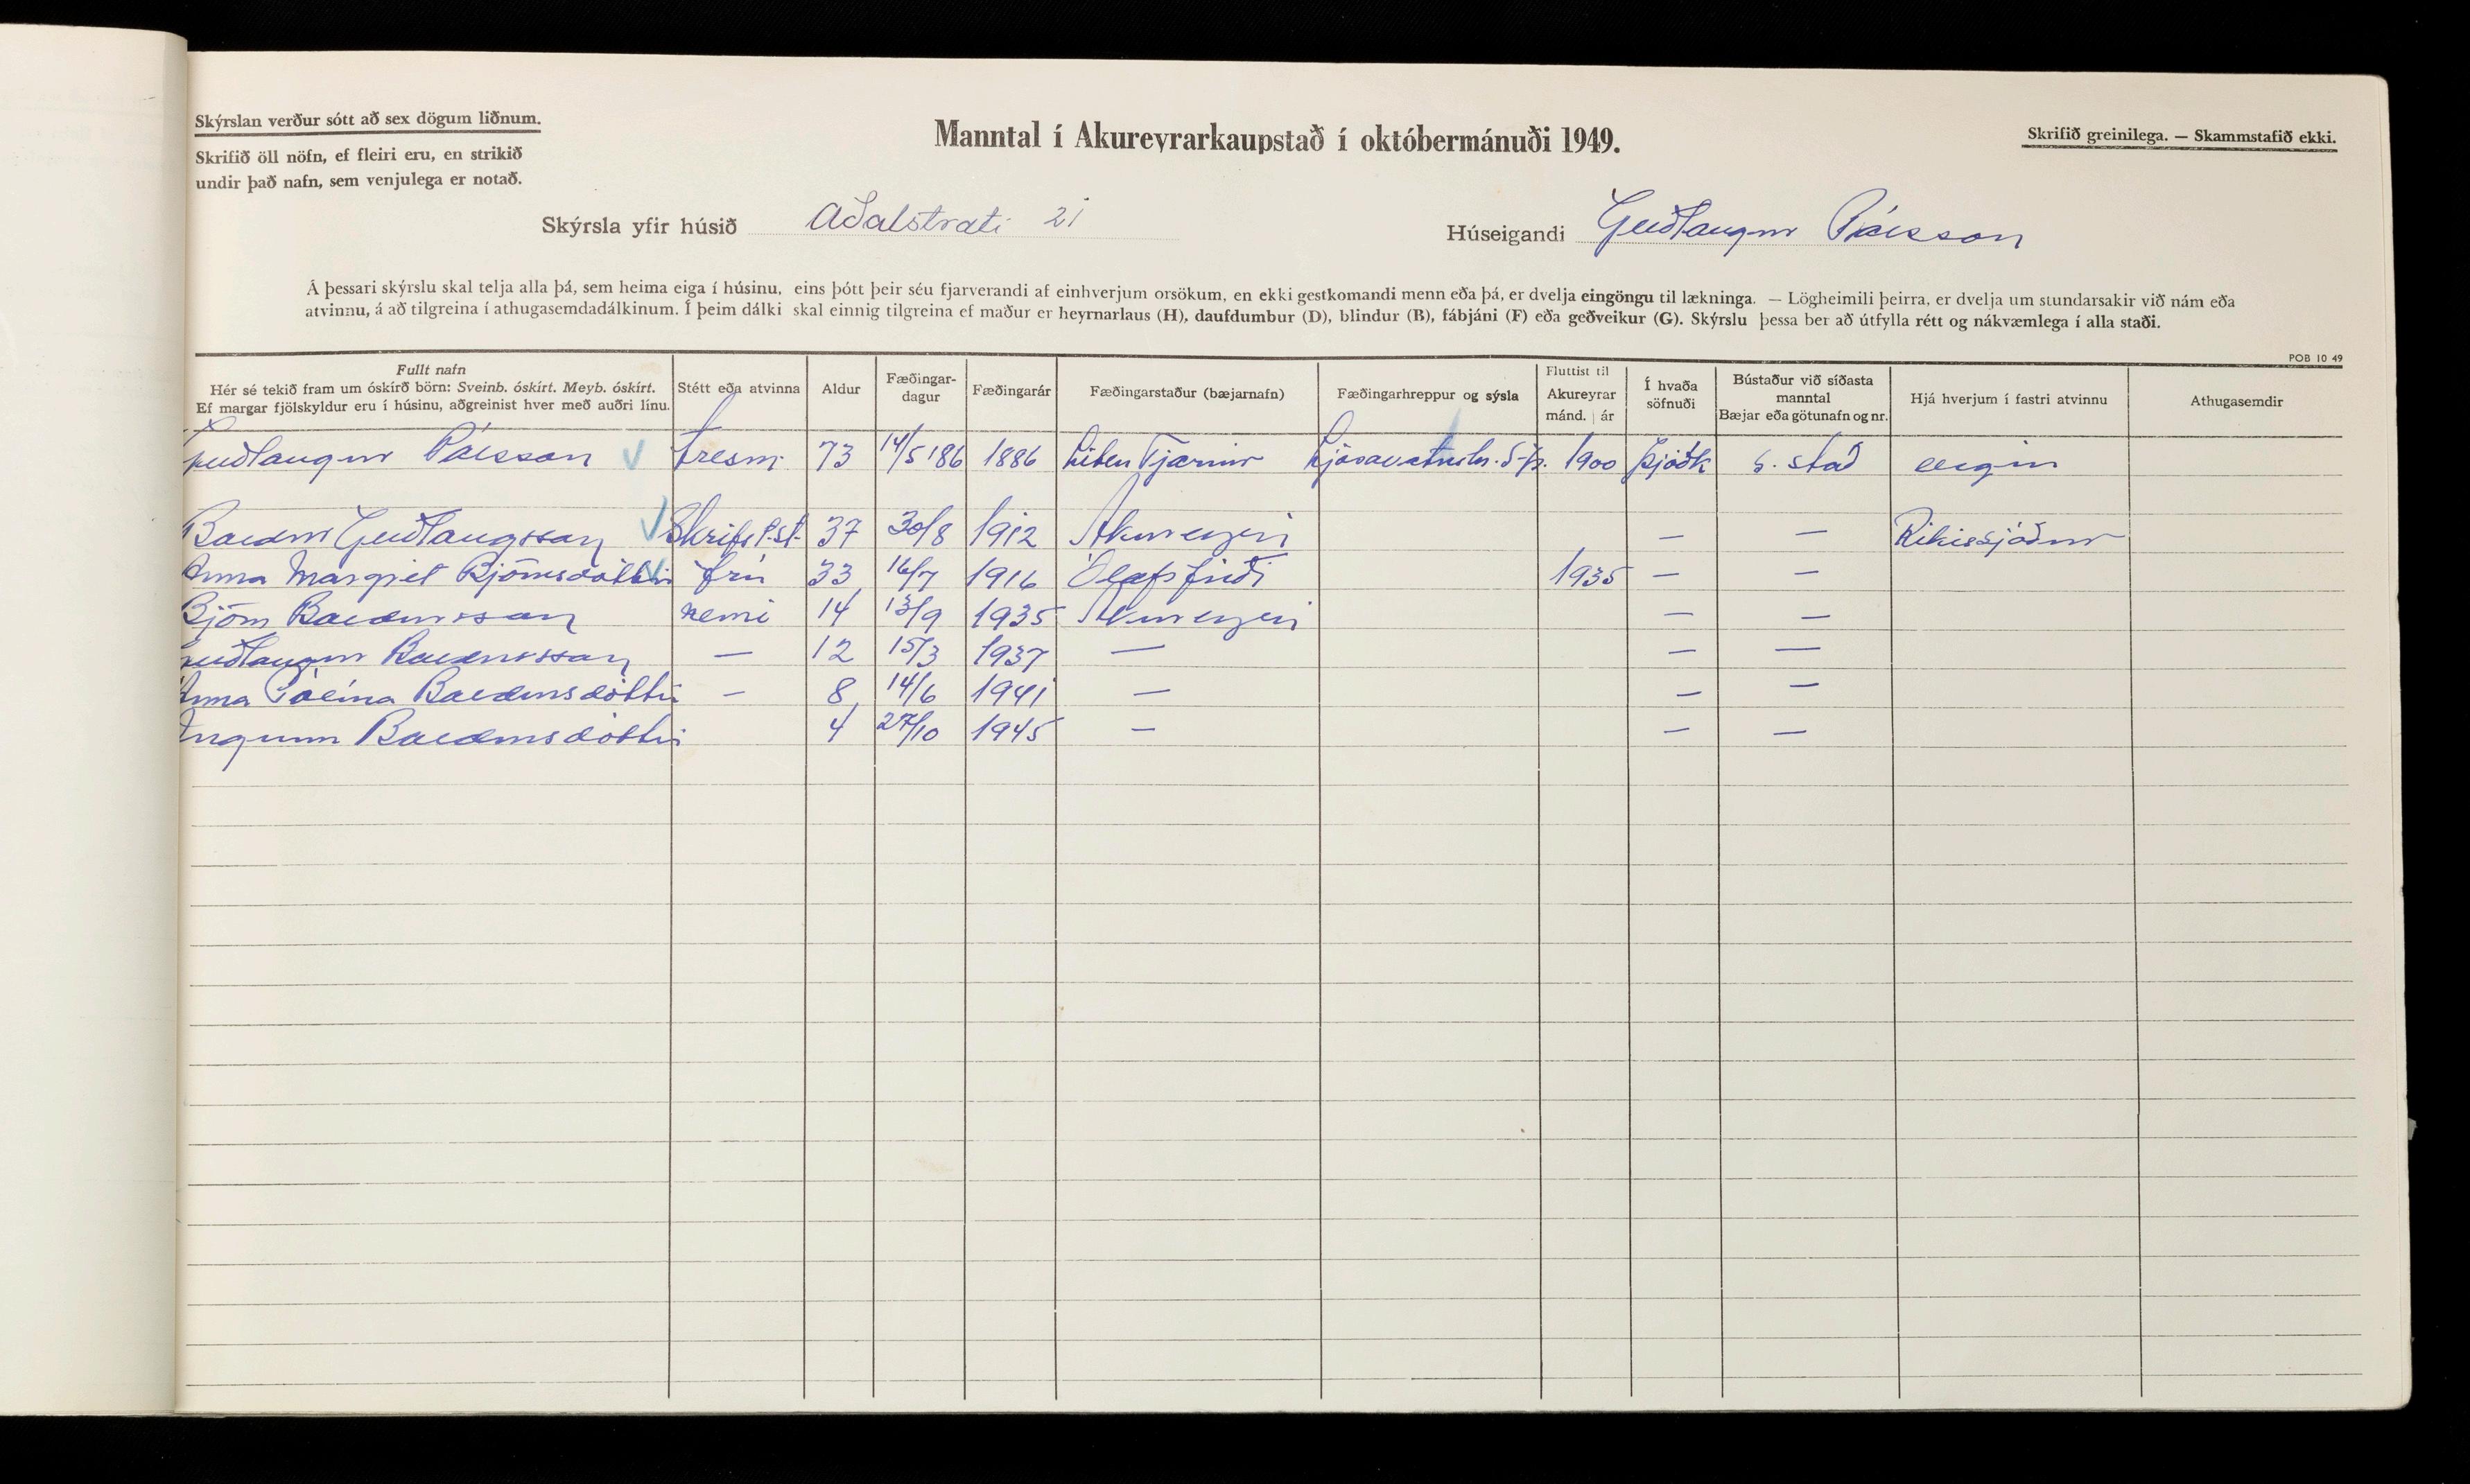 Skýrslan verður sótt að sex dögum liðnum.
Skrifið öll nöfn, ef fleiri eru, en strikið
undir það nafn, sem venjulega er notað.
Manntal í Akureyrarkaupstað í októbermánuði 1949.
Skrifið greinilega. — Skammstafið ekki.
Skýrsla yfir húsið Aðalstræti 21
Húseigandi Guðlaugur Pálsson
Á þessari skýrslu skal telja alla þá, sem heima eiga í húsinu, eins þótt þeir séu fjarverandi af einhverjum orsökum, en ekki gestkomandi menn eða þá, er dvelja eingöngu til lækninga. — Lögheimili þeirra, er dvelja um stundarsakir við nám eða
atvinnu, á að tilgreina í athugasemdadálkinum. Í þeim dálki skal einnig tilgreina ef maður er heyrnarlaus (H), daufdumbur (D), blindur (B), fábjáni (F) eða geðveikur (G). Skýrslu þessa ber að útfylla rétt og nákvæmlega í alla staði.
POB 10 49
Fullt nafn
Hér sé tekið fram um óskírð börn: Sveinb. óskírt. Meyb. óskírt.
Ef margar fjölskyldur eru í húsinu, aðgreinist hver með auðri línu.
Stétt eða atvinna
Aldur
Fæðingar-
dagur
Fæðingarár
Fæðingarstaður (bæjarnafn)
Fæðingarhreppur og sýsla
Fluttist til
Akureyrar
mánd. ár
Í hvaða
söfnuði
Bústaður við síðasta
manntal
Bæjar eða götunafn og nr.
Hjá hverjum í fastri atvinnu
Athugasemdir
Guðlaugur Pálsson tresm. 73 14/5 '86 1886 Litlu Tjarnir Ljósavatnshr. S-þ. 1900 Þjóðk s. stað eigin
Baldur Guðlaugsson Skrifst.st. 37 30/8 1912 Akureyri — — Ríkissjóður
Anna Margrét Björnsdóttir frú 33 16/7 1916 Ólafsfirði 1935 — —
Björn Baldursson nemi 14 13/9 1935 Akureyri — —
Guðlaugur Baldursson — 12 15/3 1937 — — —
Anna Pálína Baldursdóttir — 8 14/6 1941 — — —
Ingunn Baldursdóttir 4 27/10 1945 — — —